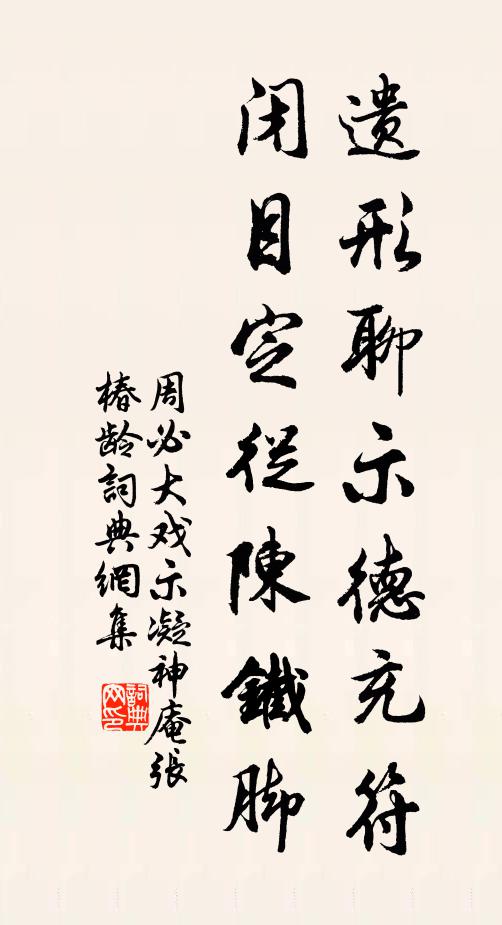 遗形聊示德充符
闭目定從陳鐵脚
周必大戏示凝神庵張
椿龄詞典網集
詞典
网印